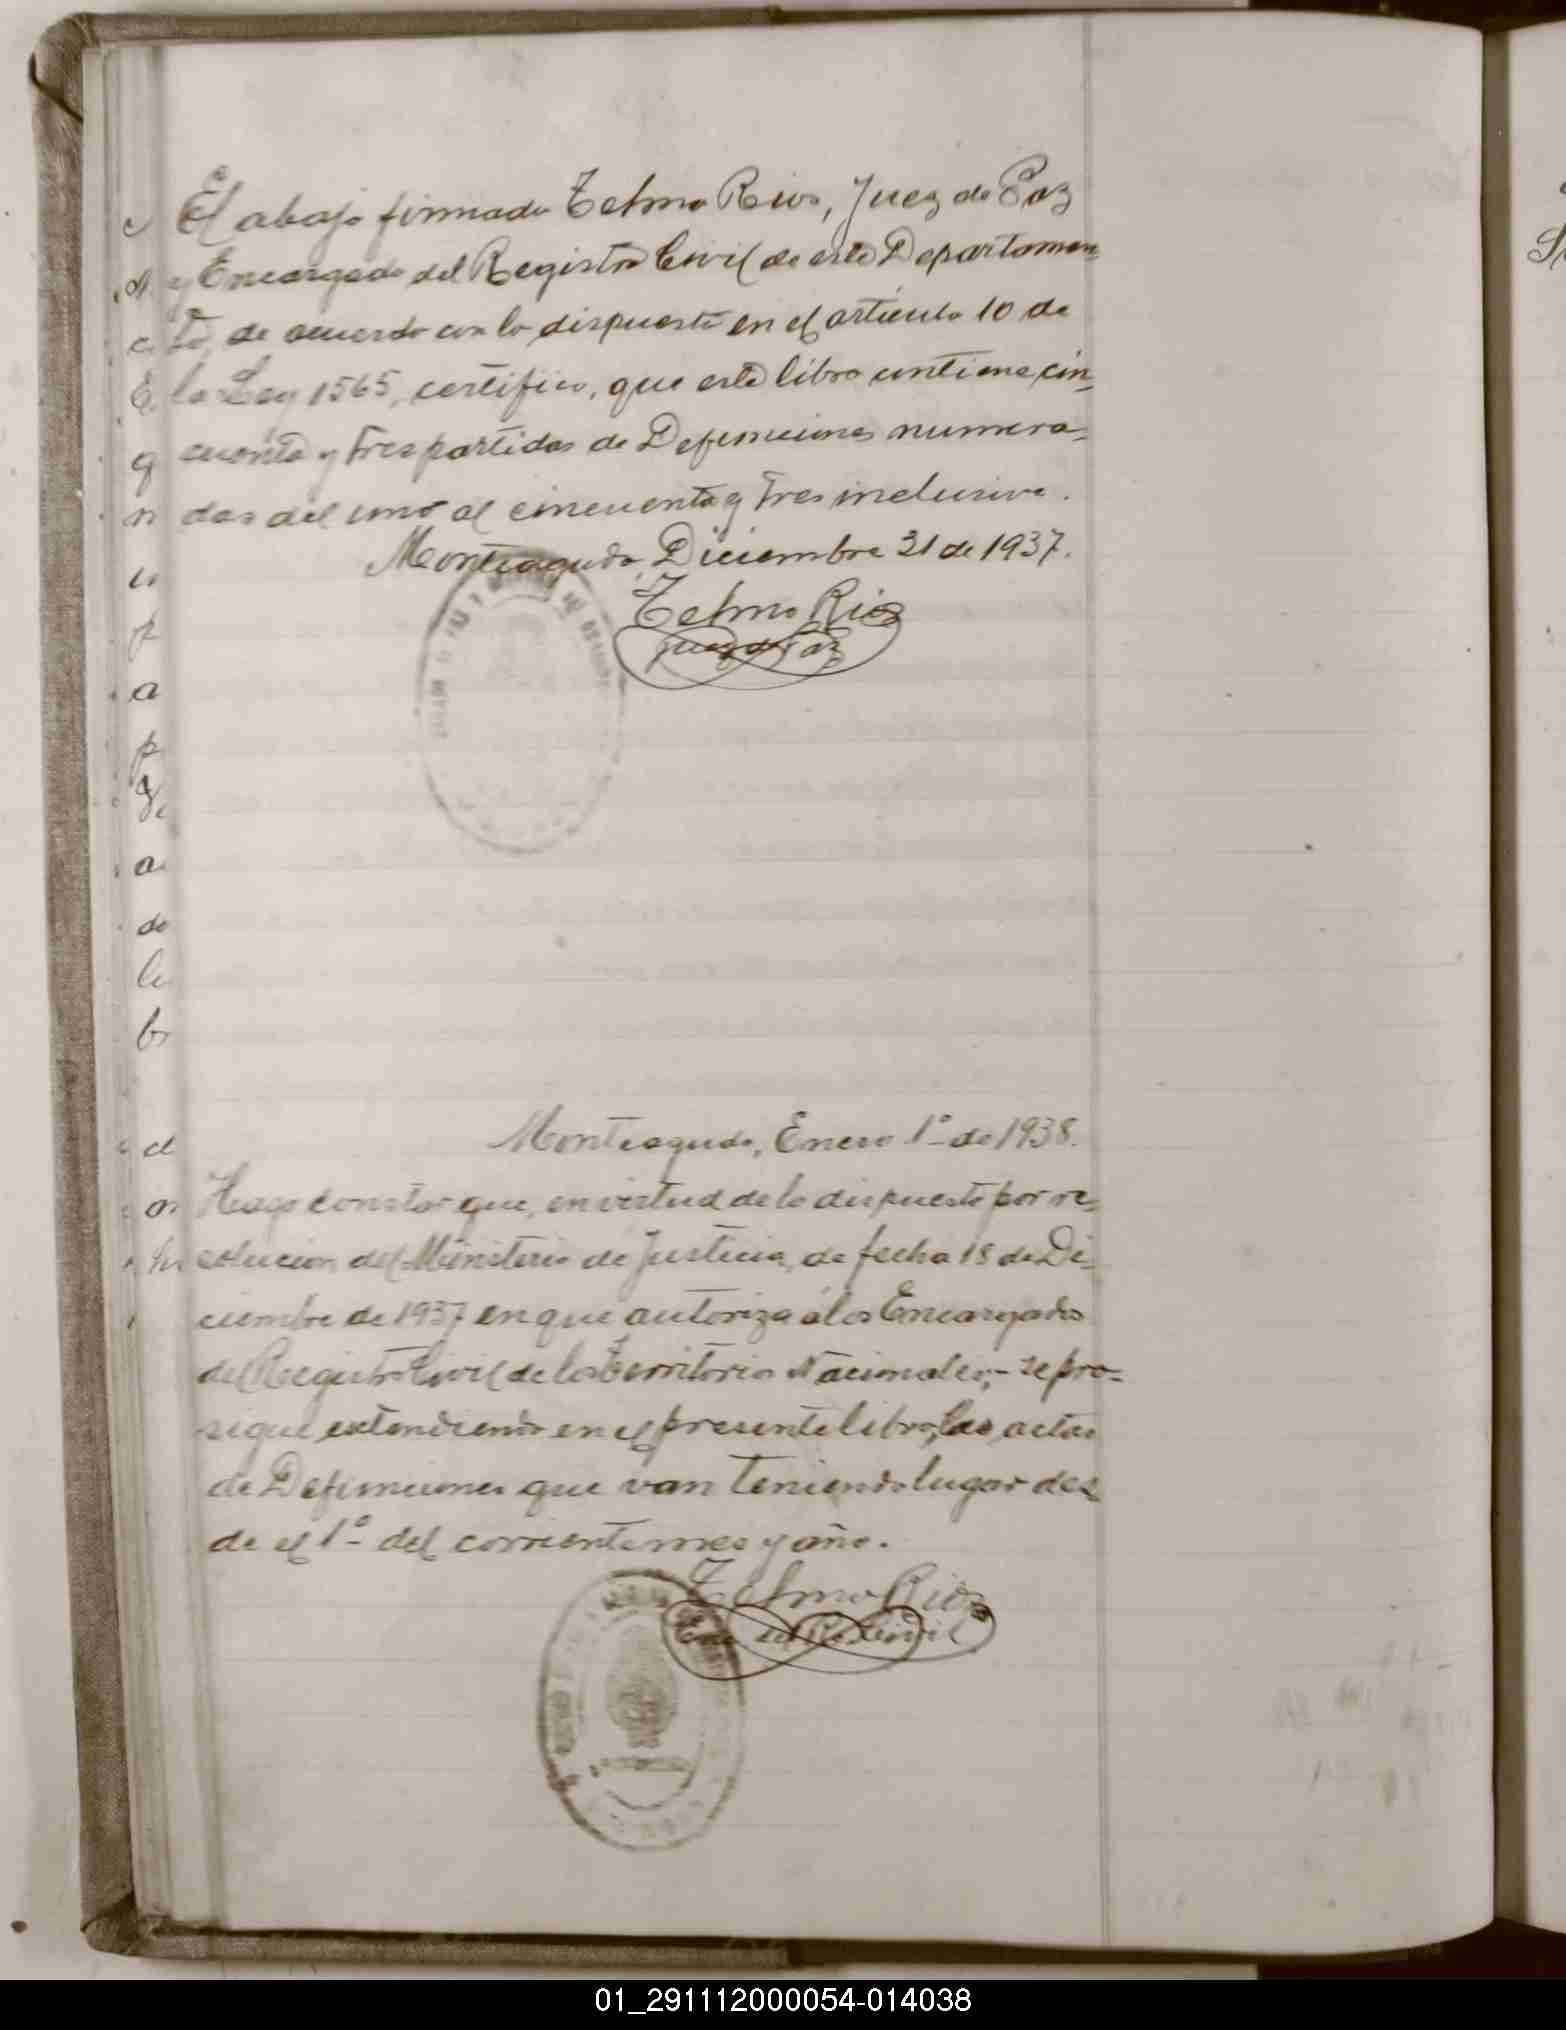 El abajo firmado Telmo Rios, Juez de Paz
y Encargado del Registro Civil de este Departamen-
to, de acuerdo con lo dispuesto en el artículo 10 de
la Ley 1565, certifico, que este libro contiene cin-
cuenta y tres partidas de Defunciones numera-
das del uno al cincuenta y tres inclusive.
Monteagudo, Diciembre 31 de 1937.
Telmo Rios
Juez de Paz
Monteagudo, Enero 1º de 1938.
Hago constar que, en virtud de lo dispuesto por re-
solucion del Ministerio de Justicia, de fecha 18 de Di-
ciembre de 1937 en que autoriza á los Encargados
del Registro Civil de los Territorios Nacionales,- se pro-
sigue extendiendo en el presente libro, las actas
de Defunciones que van teniendo lugar des-
de el 1º del corriente mes y año.
Telmo Rios
Enc. del R. Civil
01_291112000054-014038